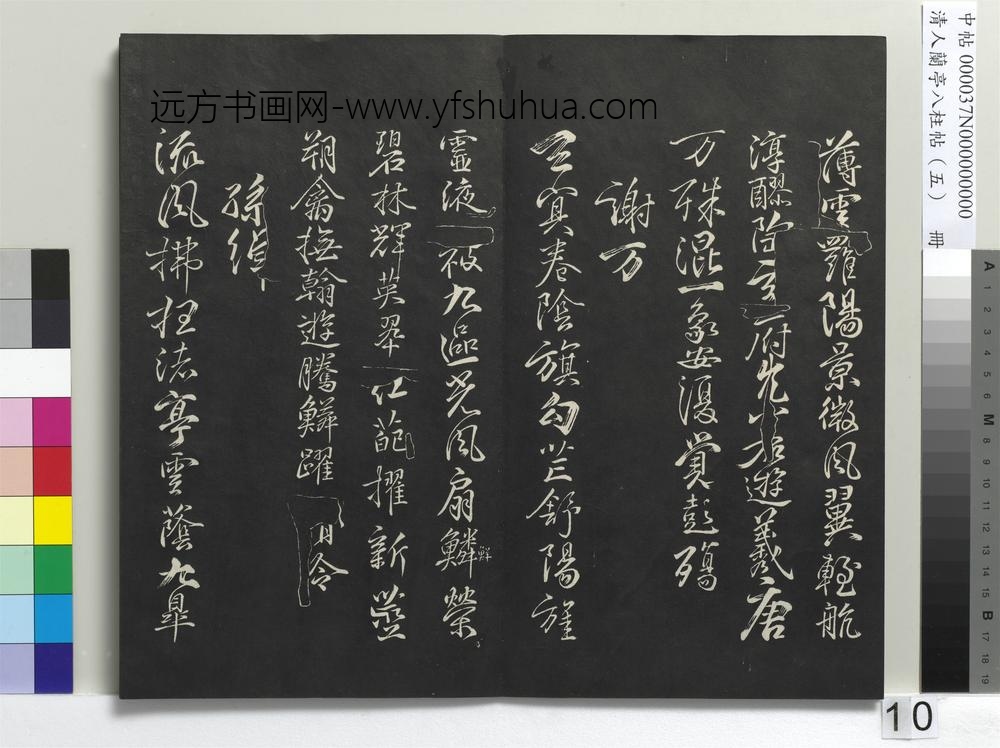 薄雲羅陽景微風翼輕航
淳醪陶玄府兀若遊羲唐
万殊混一象安復覺彭殤
謝万
玄冥卷陰旗句芒舒陽旌
靈液被九區光風扇鱗榮
鮮
碧林輝英翠紅葩擢新莖
翔禽撫翰遊騰鱗躍清泠
孫綽
流風拂枉渚亭雲蔭九皐
远方书画网-www.yfshuhua.com
中帖000037N000000000
清人蘭亭八柱帖(五) 冊
A 1 2 3 4 5 6 M 8 9 10 11 12 13 14 15 B 17 18 19
10